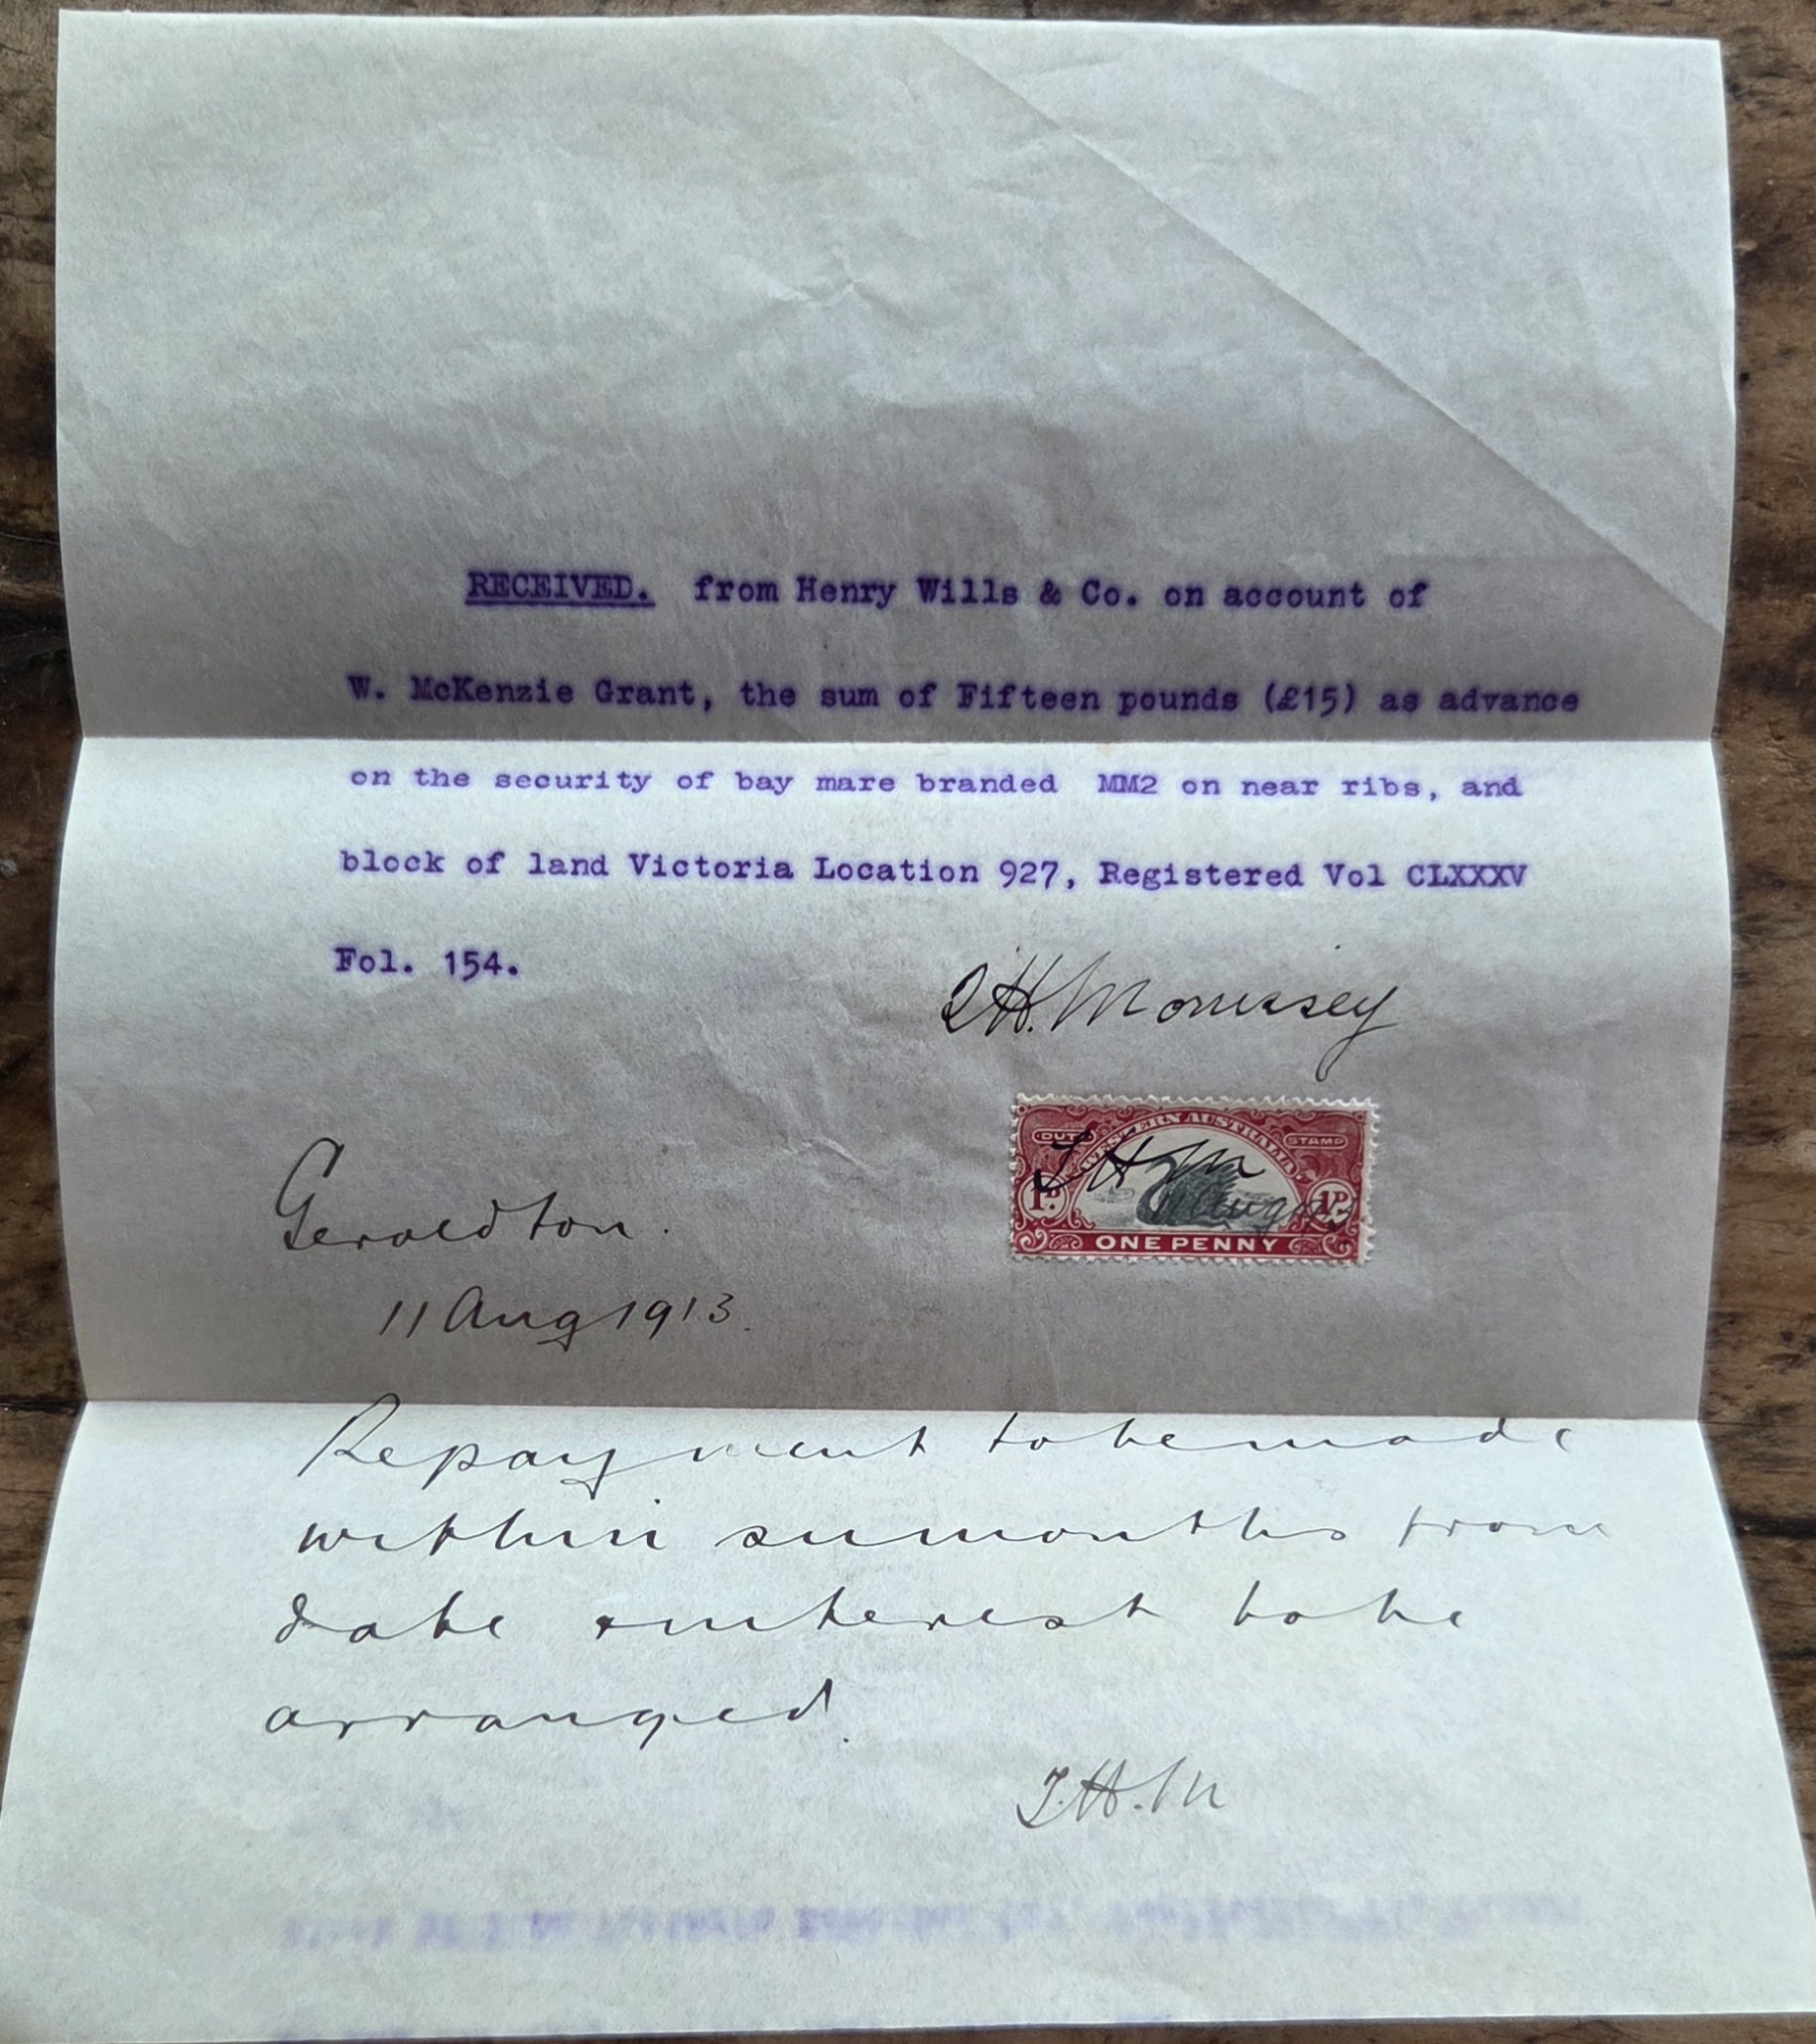 RECEIVED. from Henry Wills & Co. on account of
W. McKenzie Grant, the sum of Fifteen pounds (£15) as advance
on the security of bay mare branded MM2 on near ribs, and
block of land Victoria Location 927, Registered Vol CLXXXV
Fol. 154.
H. Morrissey
DUTY WESTERN AUSTRALIA STAMP
1D. 1D.
ONE PENNY
H M
Aug
Geraldton.
11 Aug 1913.
Repayment to be made
within six months from
date interest to be
arranged.
T.H.M